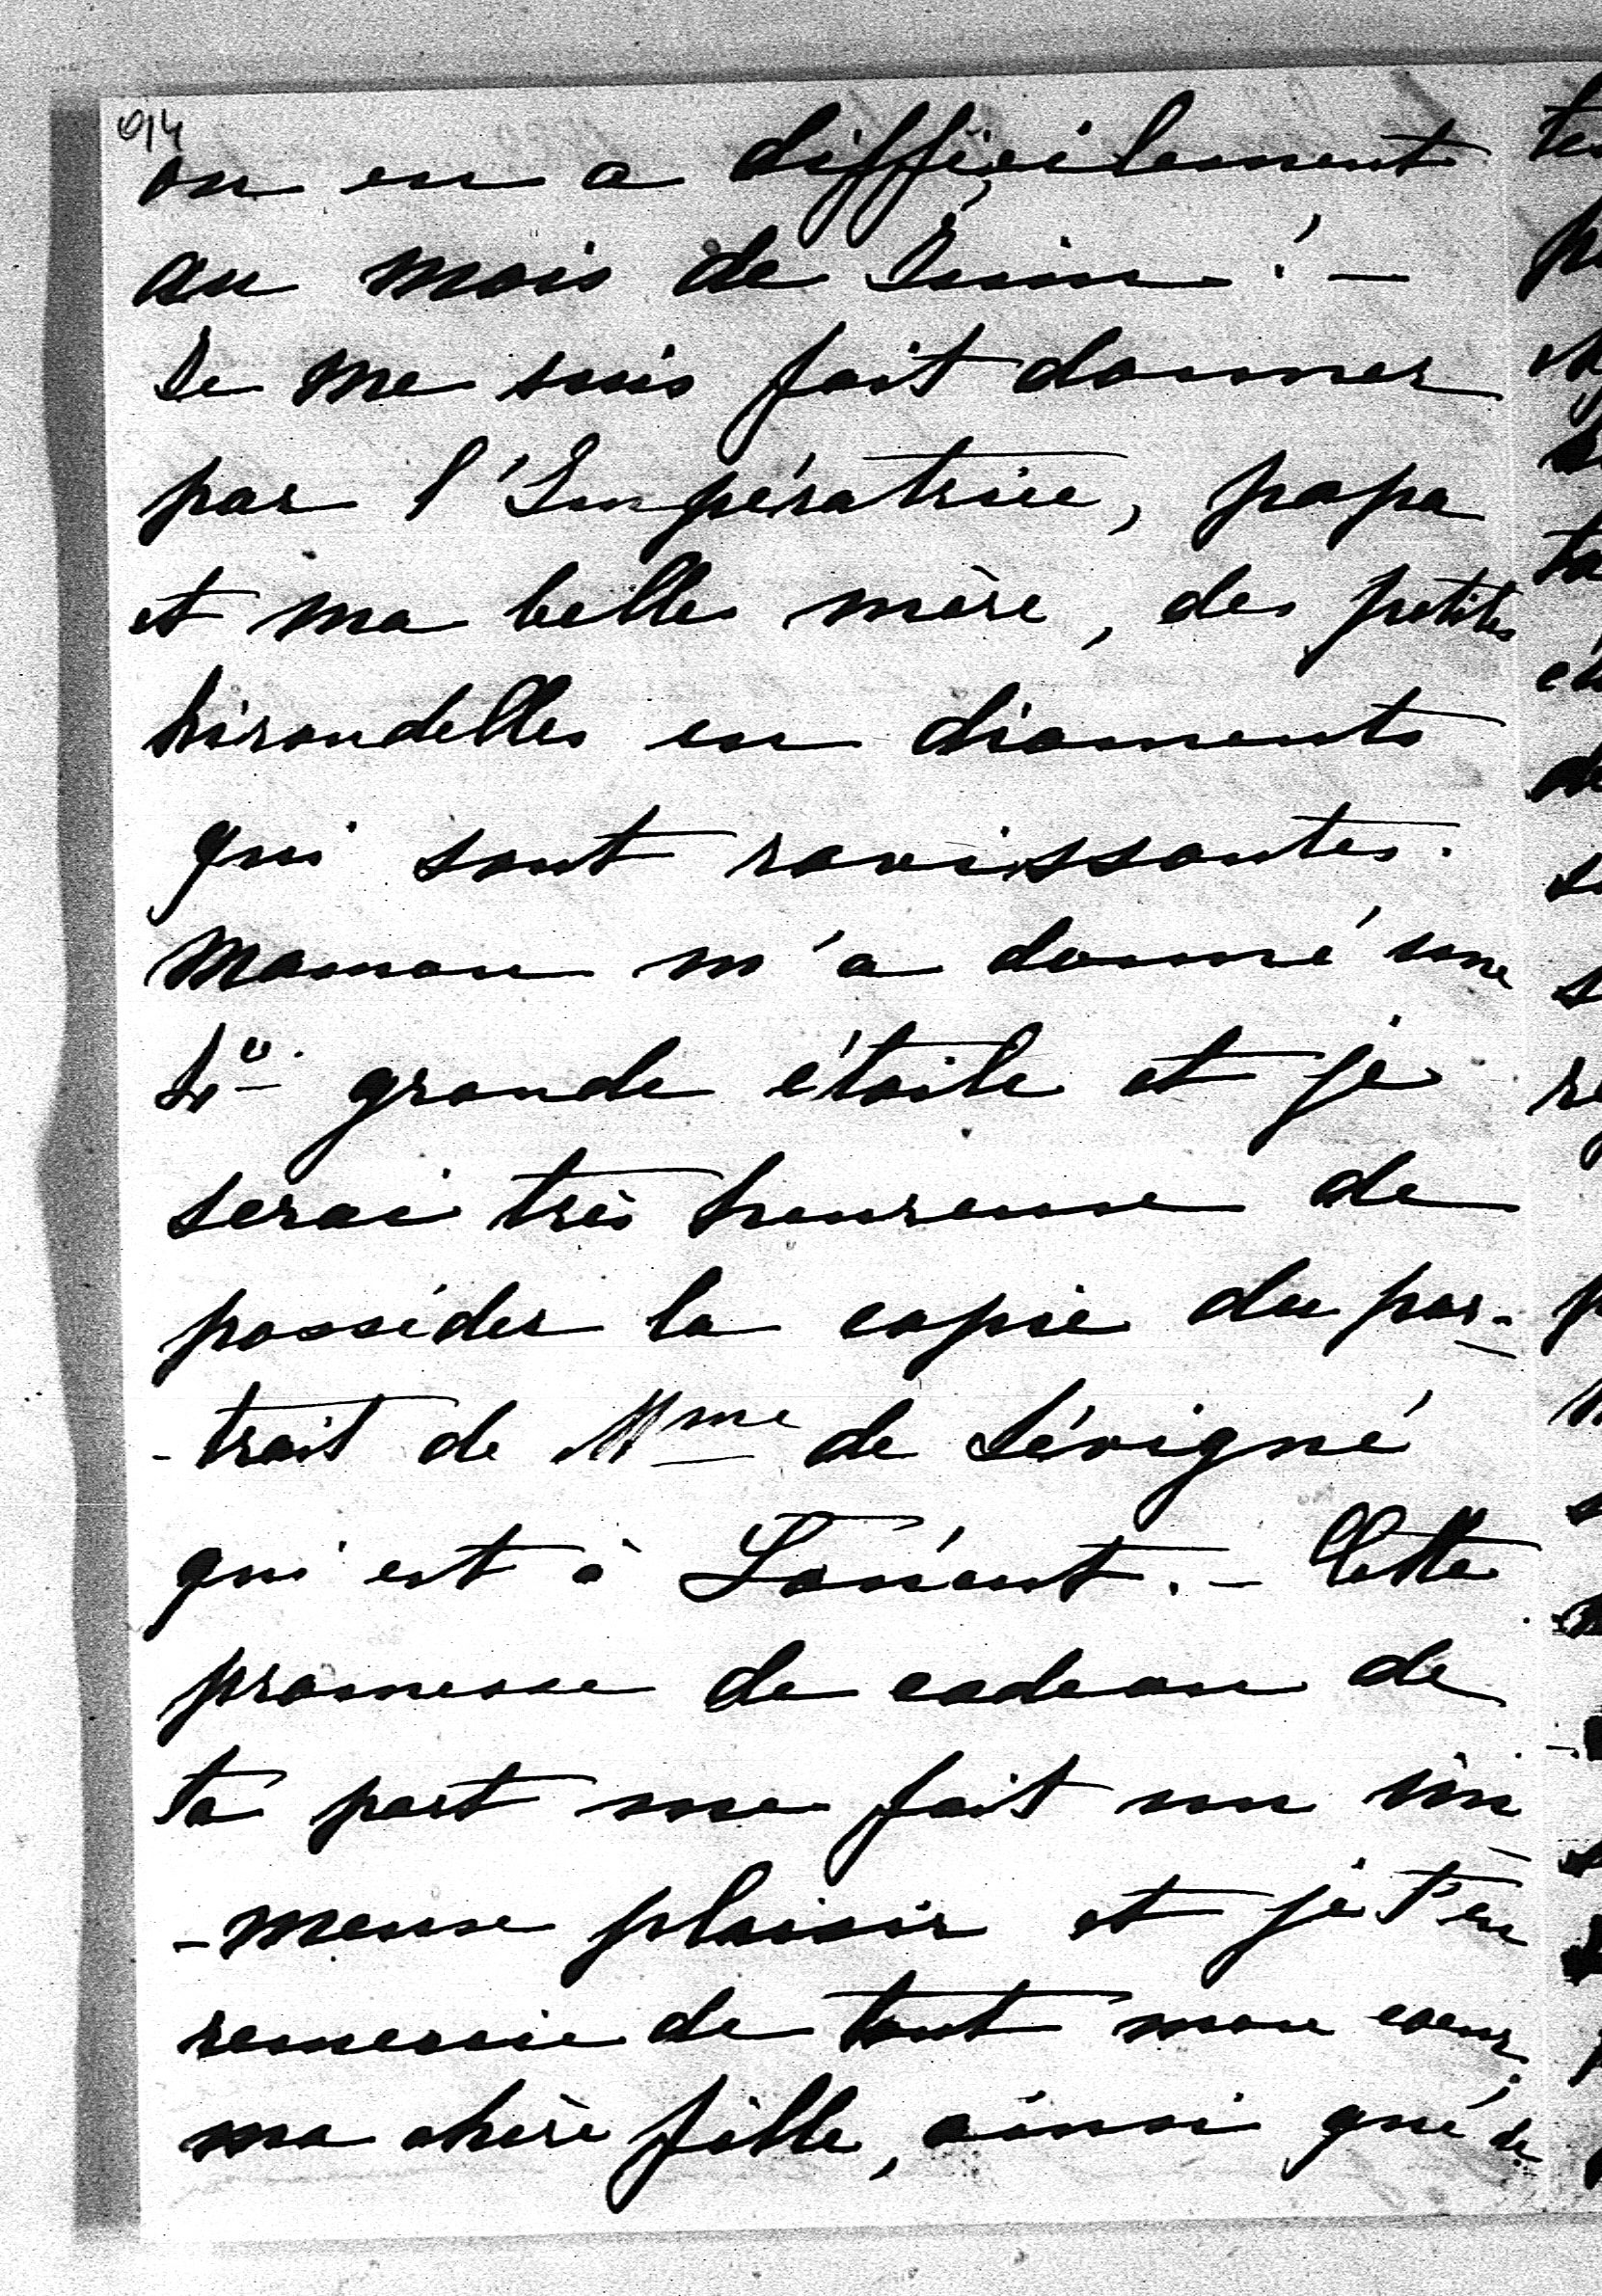 914
on en a difficilement
au mois de Juin! -
Je me suis fait donner
par l'Impératrice, papa
et ma belle mère, des petites
hirondelles en diamants
qui sont ravissantes.
Maman m'a donné une
grande étoile et je
serai très heureuse de
posséder la copie du por-
-trait de Mme de Sévigné
qui est à . - Cette
promesse de cadeau de
ta part me fait un im
-mense plaisir et je t'en
remercie de tout mon coeur,
ma chère fille, ainsi que de